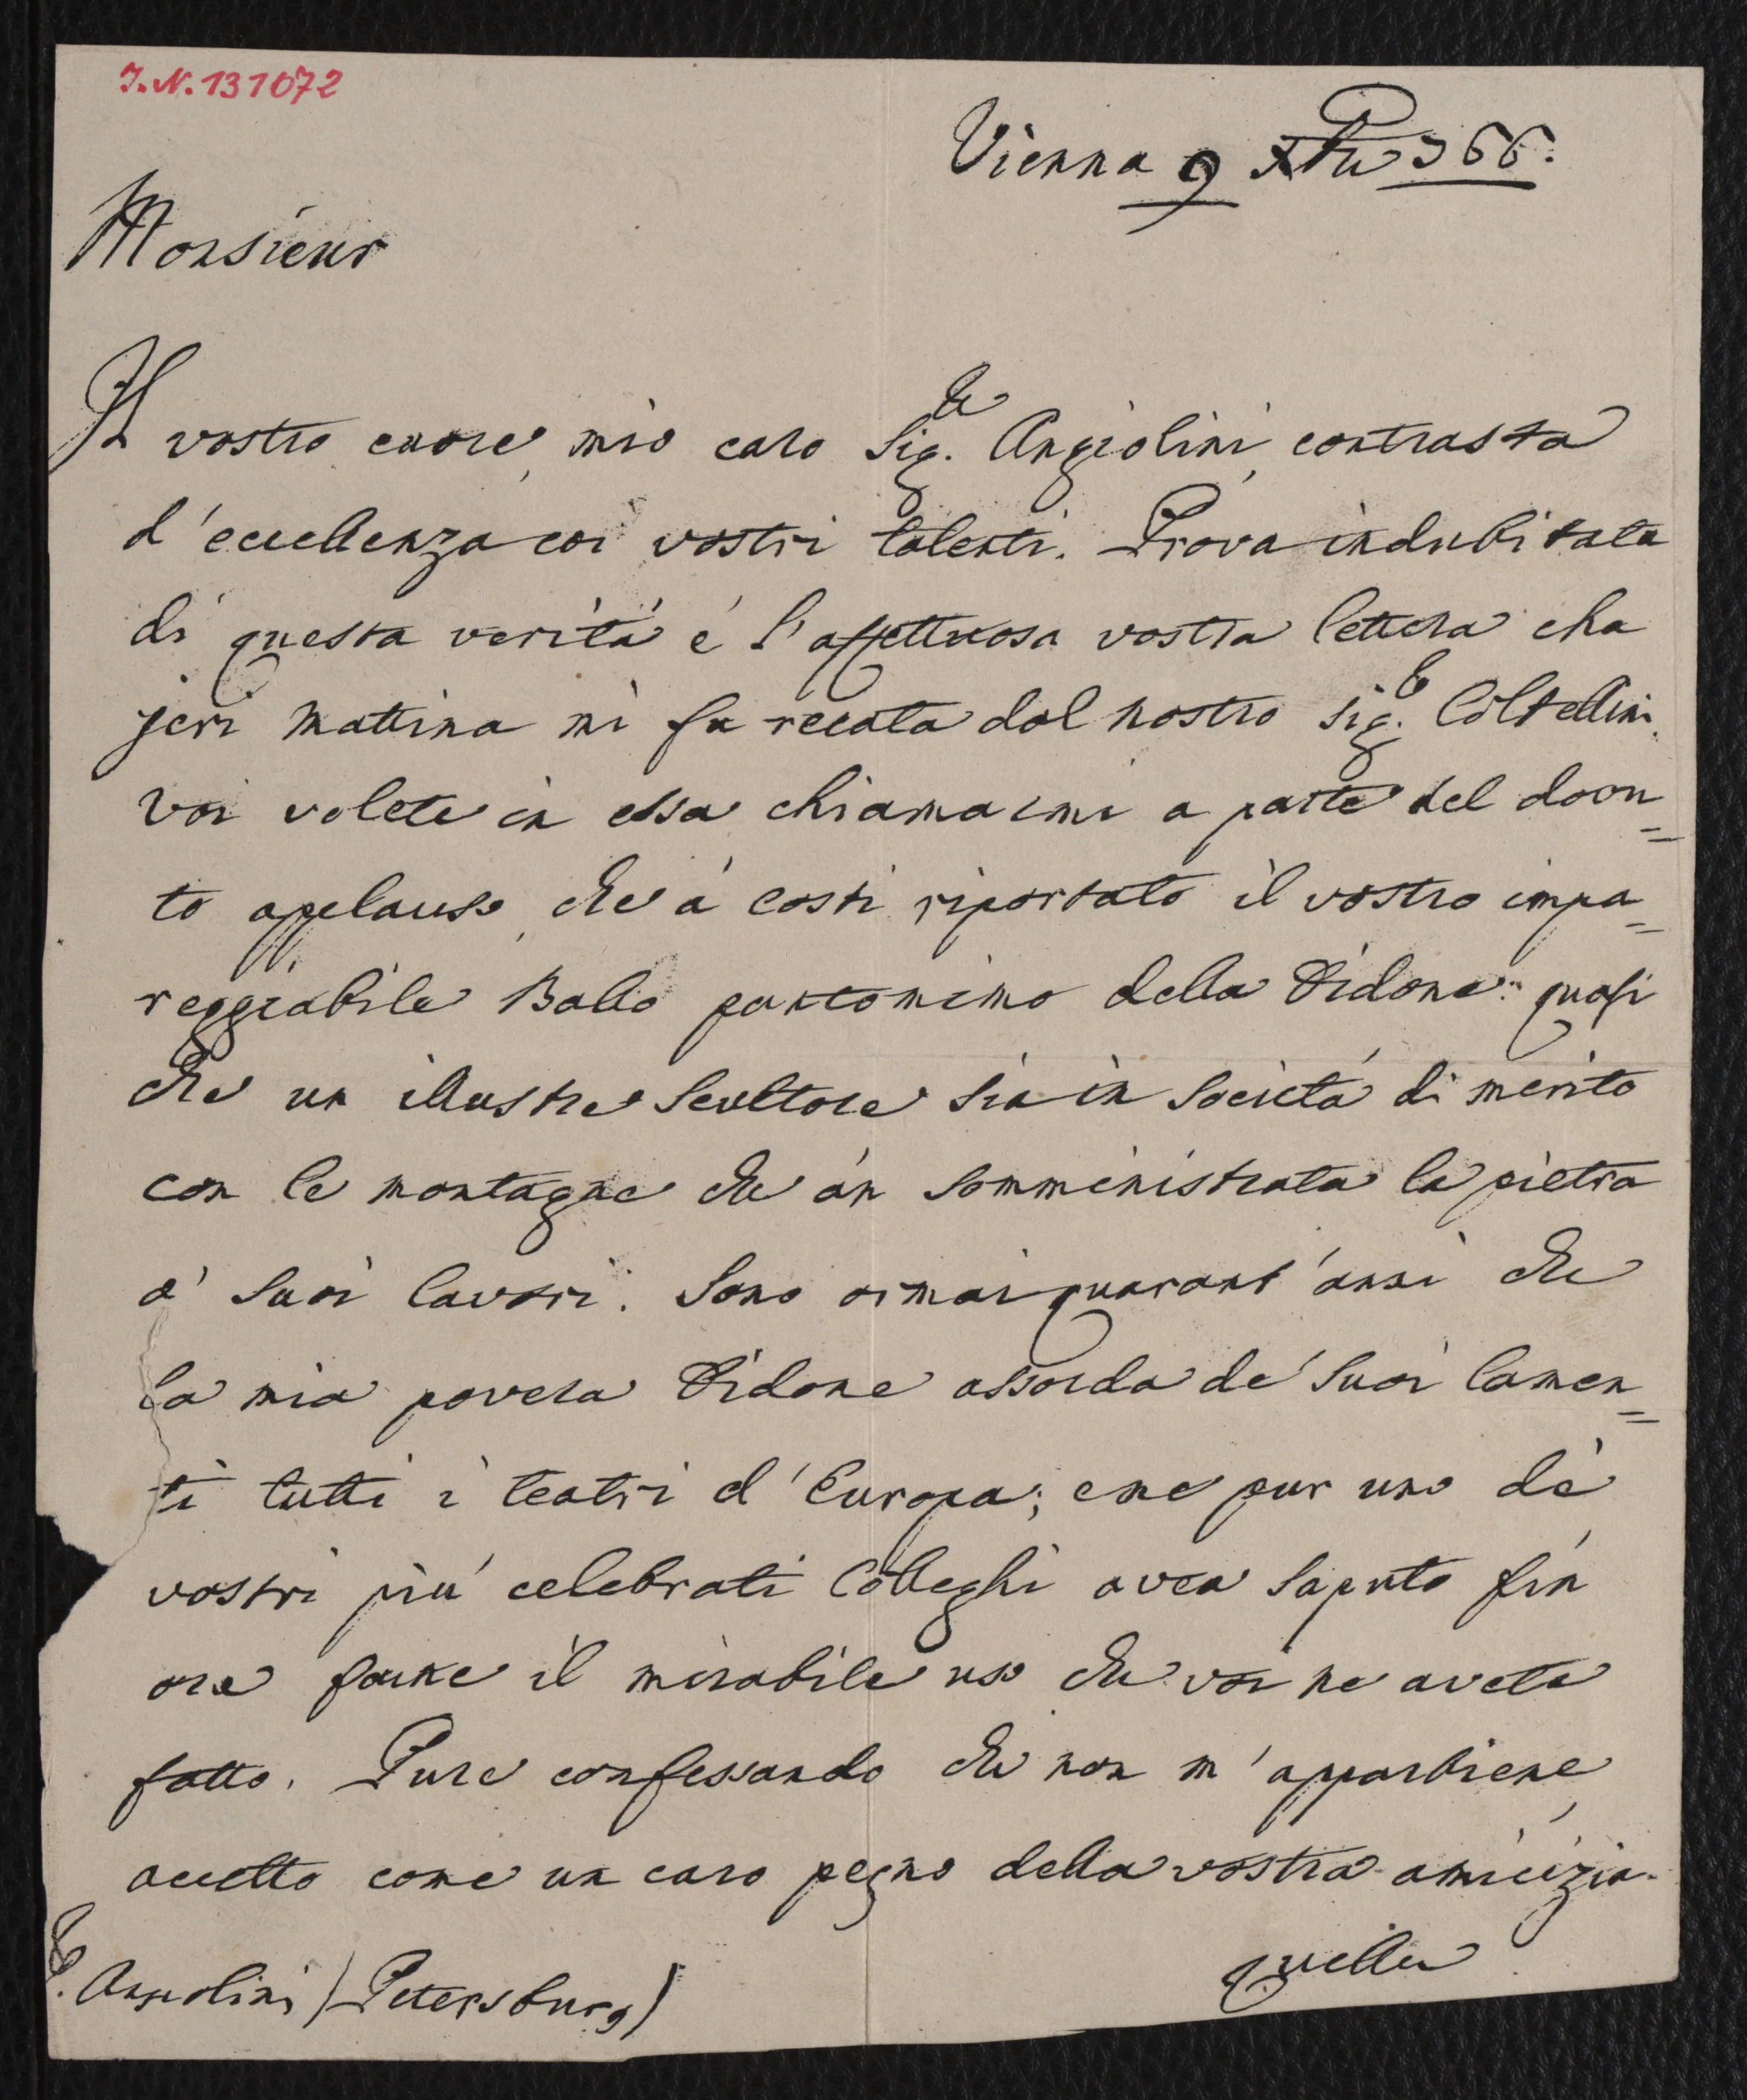 J. N. 131072
Vienna 9 Xbre 766.
Monsieur
Il vostro cuore, mio caro Sig.re Angiolini, contrasta
d'eccellenza coi vostri talenti. Prova indubitata
di questa verità é l'affettuosa vostra lettera che
jeri mattina mi fu recata dal nostro Sig.e Coltellini.
Voi volete in essa chiamarmi a parte del dovu=
to applauso, che à costi riportato il vostro impa=
reggiabile Ballo pantomimo della Didone: quasi
che un illustre Scultore sia in Società di merito
con le montagne che án somministrata la pietra
a' suoi lavori. Sono ormai quarant'anni che
la mia povera Didone assorda de' suoi lamen=
ti tutti i teatri d'Europa; e ne pur uno de'
vostri più celebrati Colleghi avea saputo fin
ora farne il mirabile uso che voi ne avete
fatto. Pure confessando che non m'appartiene,
accetto come un caro pegno della vostra amicizia
quella
Angiolini (Petersburg)